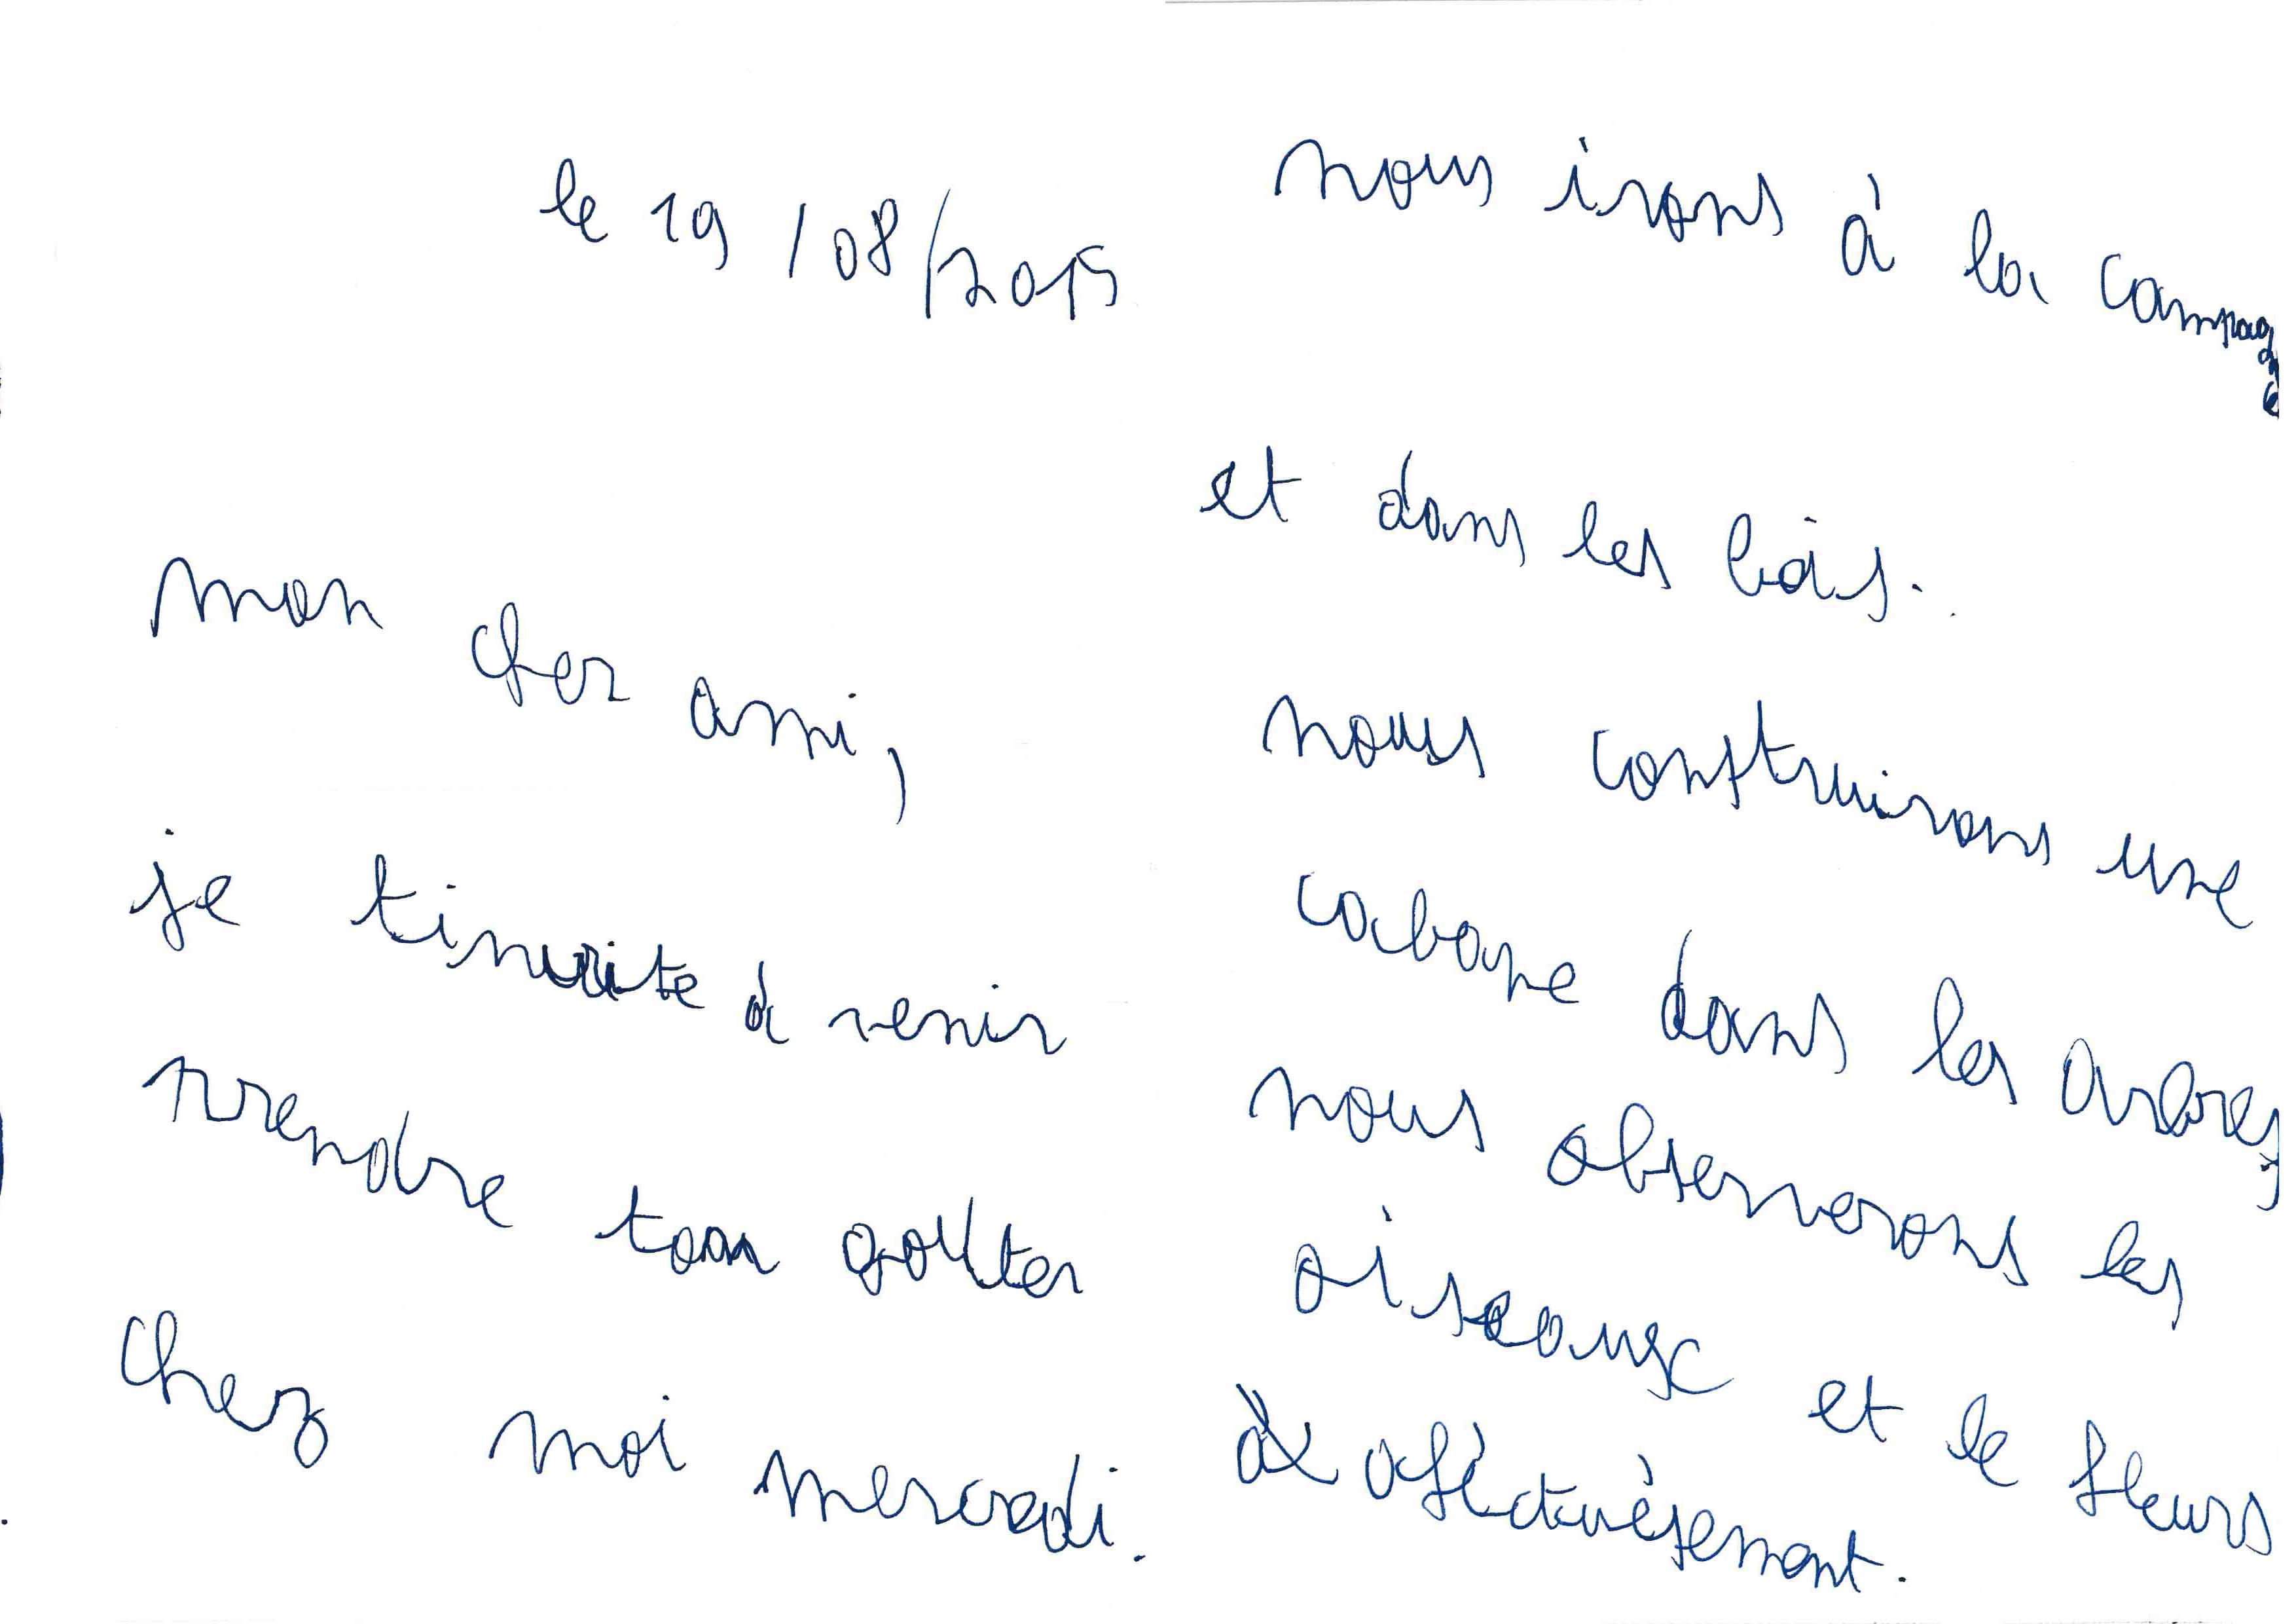 le 19/08/2015
mon cher ami,
je tinvite à venir
prendre ton goûter
chez moi mercredi.
nous irons à la campagne
et dans les bois.
nous construirons une
cabane dans les arbres
nous observerons les
oiseaux et le fleurs
afèctuèsement.